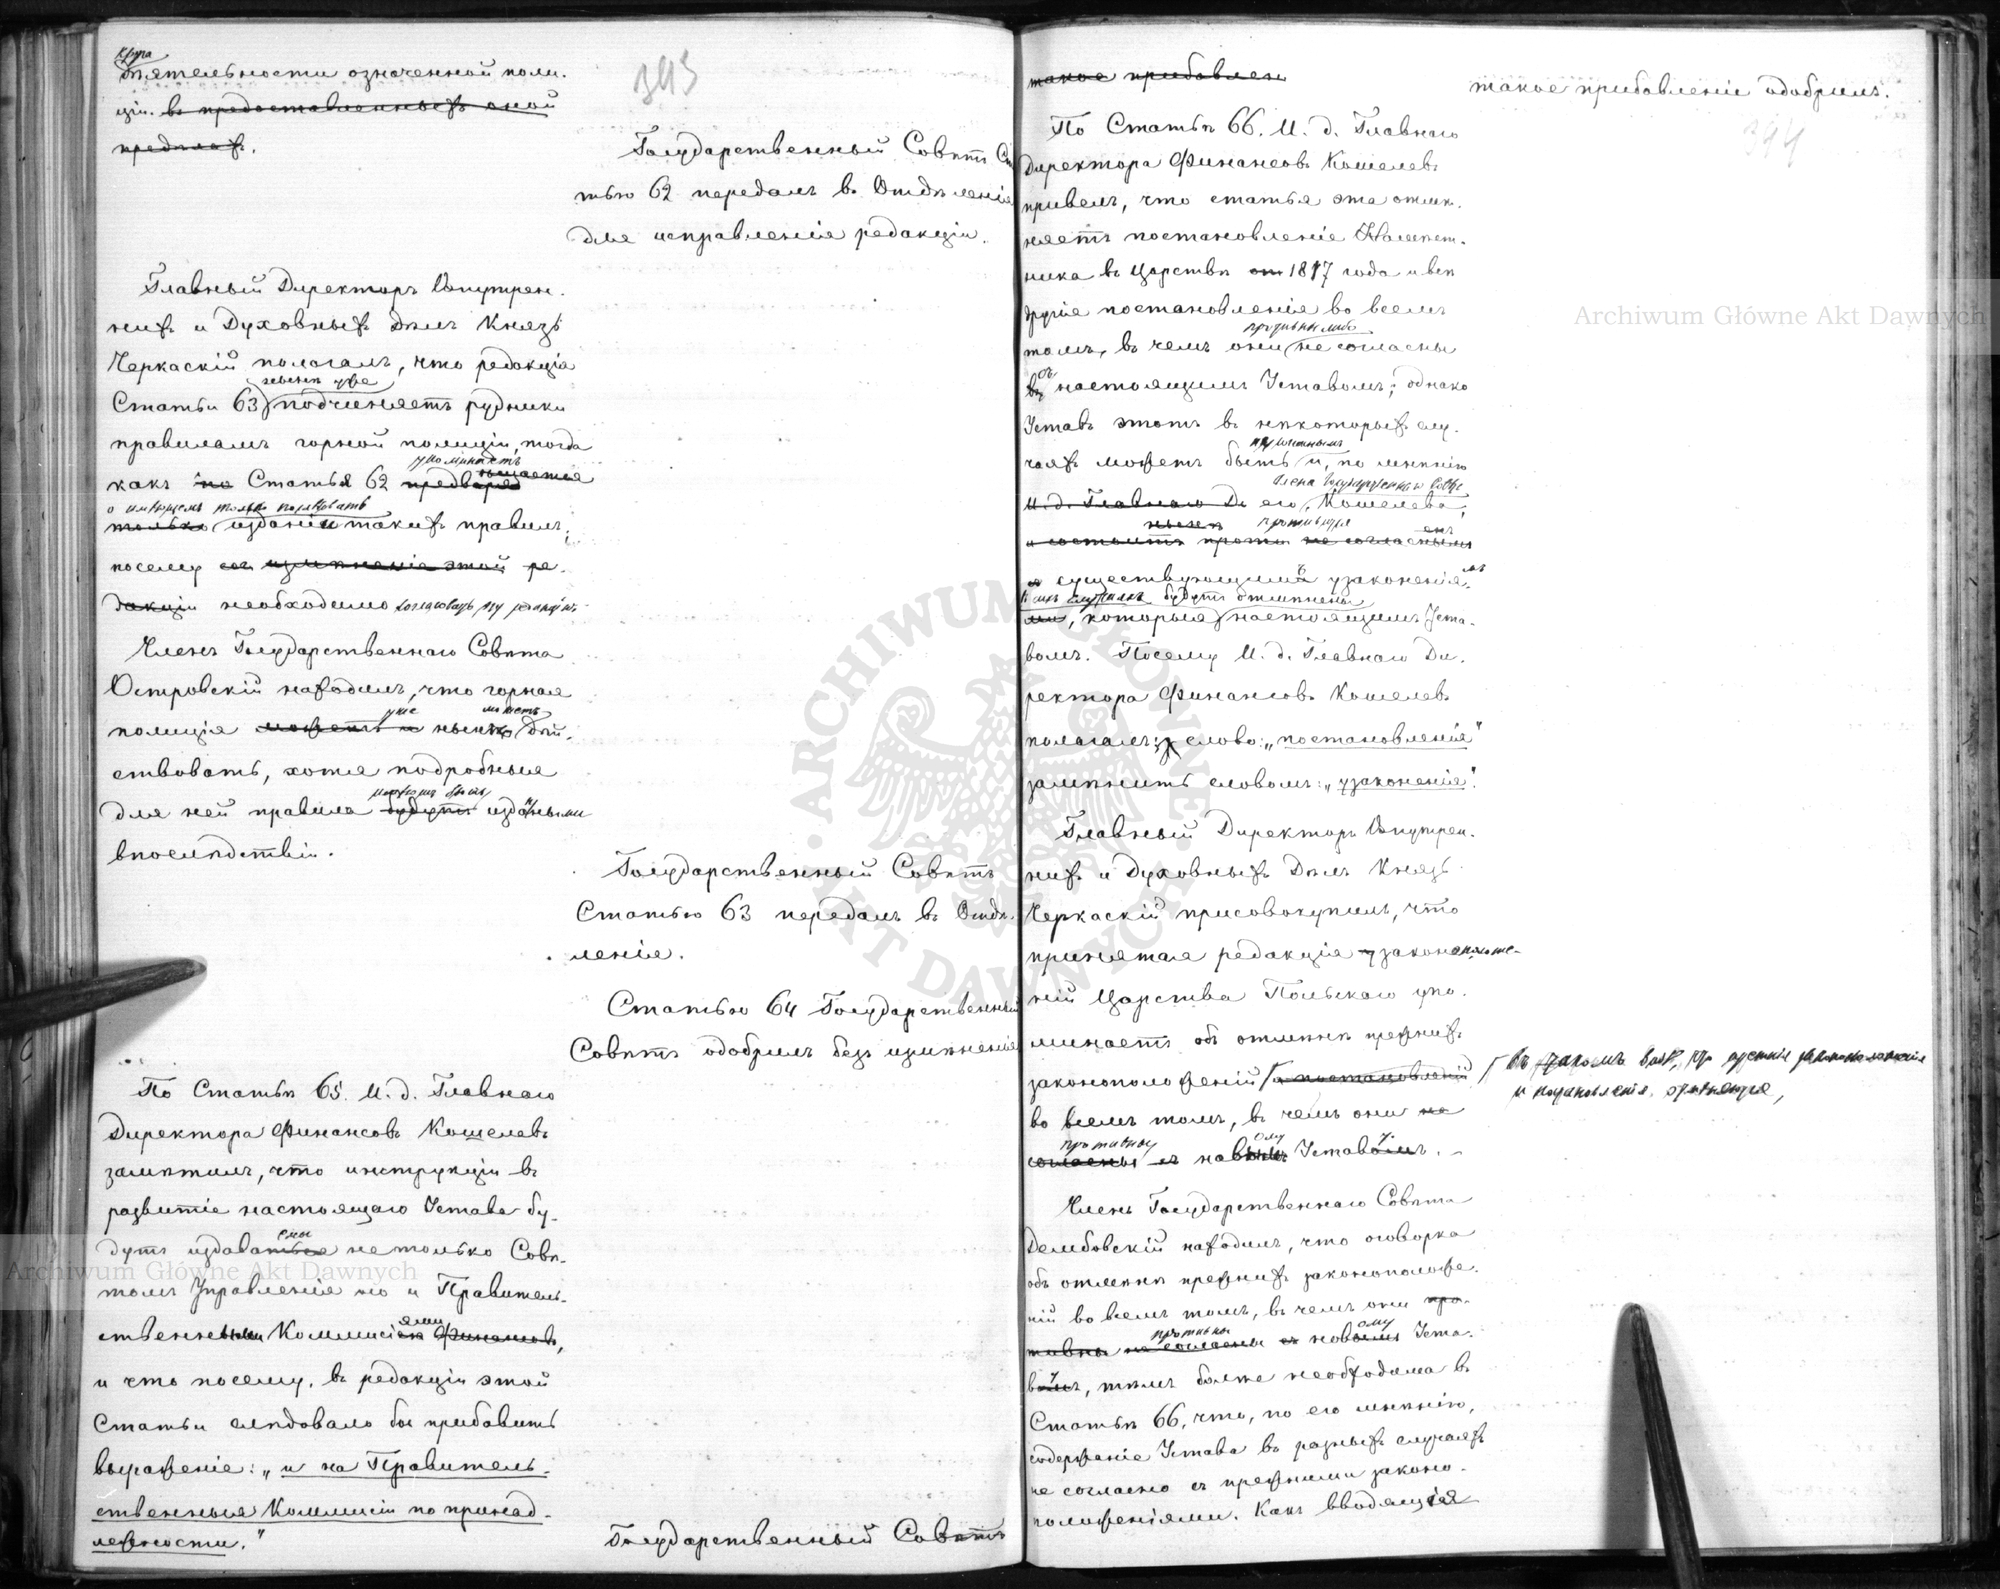 круга
дѣятельности означенной поли-
ціи. въ предоставленныхъ оной
предѣлахъ.
393
Государственный Совѣтъ Ста
тью 62 передалъ въ Отдѣленіе
для исправленія редакціи.
Главный Директоръ Внутрен-
нихъ и Духовныхъ Дѣлъ Князь
Черкаскій полагалъ, что редакція
нынѣ уже
Статьи 63 подчиняетъ рудники
правиламъ горной полиціи, тогда
упоминаетъ
какъ по Статья 62
о имѣющемъ только послѣдовать
только изданіи такихъ правилъ;
посему измѣненіе этой ре-
дакціи необходимо согласовать эту редакцію.
Членъ Государственнаго Совѣта
Островскій находилъ, что горная
уже можетъ
полиція можетъ и нынѣ дѣй-
ствовать, хотя подробныя
могутъ быть
для ней правила будутъ изданными
впослѣдствіи.
Государственный Совѣтъ
Статью 63 передалъ въ Отдѣ-
леніе.
Статью 64 Государственный
Совѣтъ одобрилъ безъ измѣненія
По Статьѣ 65. И. д. Главнаго
Директора Финансовъ Кошелевъ
замѣтилъ, что инструкціи въ
развитіе настоящаго Устава бу-
емы
дутъ издаваться не только Совѣ-
томъ Управленія но и Правитель-
ями
ственными Коммисіею Финансовъ,
и что посему, въ редакціи этой
Статьи слѣдовало бы прибавить
выраженіе: „и на Правитель-
ственныя Коммисіи по принад-
лежности."
Государственный Совѣтъ
такое прибавлен
такое прибавленіе одобрилъ.
394
По Статьѣ 66. И. д. Главнаго
Директора Финансовъ Кошелевъ
привелъ, что статья эта отмѣ-
няетъ постановленіе Намѣст-
ника въ Царствѣ от 1817 года и всѣ
другіе постановленія во всемъ
противны либо
томъ, въ чемъ они не согласны
съ
въ настоящимъ Уставомъ; однако
Уставъ этотъ въ нѣкоторыхъ слу-
чаяхъ можетъ быть и, по мнѣнію
Члена Государственнаго Совѣта
И. д. Главнаго Ди его, Кошелева,
нынѣ противуря
и состоитъ проти не согласнымъ
существующими узаконенія
въ случаѣ будутъ отмѣнены
ми, которыя настоящимъ Уста-
вомъ. Посему И. д. Главнаго Ди-
ректора Финансовъ Кошелевъ
полагалъ: слово: „постановленія"
замѣнить словомъ: „узаконенія".
Главный Директоръ Внутрен-
нихъ и Духовныхъ Дѣлъ Князь
Черкаскій присовокупилъ, что
принятая редакція законоположе-
ній Царства Польскаго упо-
минаетъ объ отмѣнѣ прежнихъ
законоположеній и постановленій
и постановленія.
во всемъ томъ, въ чемъ они не
противны ому
согласны съ новымъ Уставомъ.
Членъ Государственнаго Совѣта
Дембовскій находилъ, что оговорка
объ отмѣнѣ прежнихъ законополože-
ній во всемъ томъ, въ чемъ они про-
противны ому
тивны не согласны съ новымъ Уста-
вомъ, тѣмъ болѣе необходима въ
Статьѣ 66, что, по его мнѣнію,
содержаніе Устава въ разныхъ случаяхъ
не согласно съ прежними законо-
положеніями. Какъ вводящія
Archiwum Główne Akt Dawnych
Archiwum Główne Akt Dawnych
ARCHIWUM GŁÓWNE AKT DAWNYCH